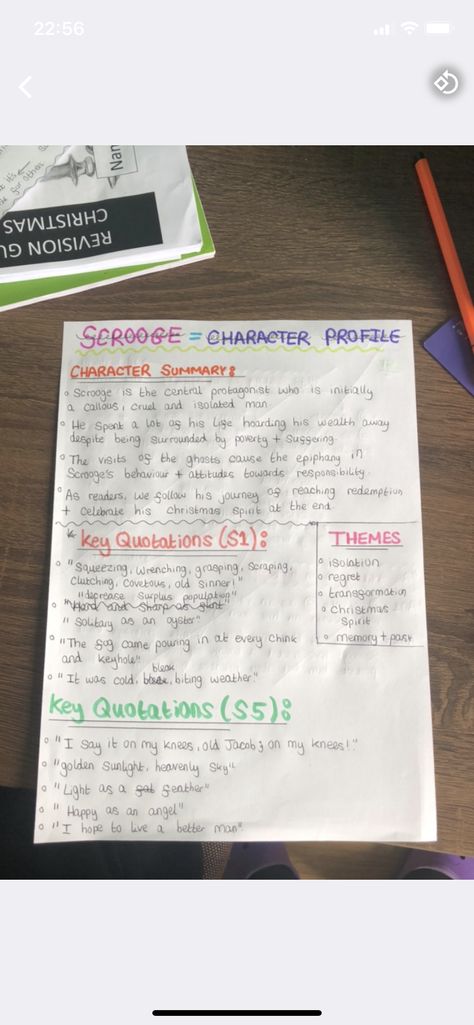 22:56
it's
for other
Nan
REVISION GU
CHRISTMAS
SCROOGE = CHARACTER PROFILE
CHARACTER SUMMARY:
Scrooge is the central protagonist who is initially
a callous, cruel and isolated man.
He spent a lot of his life hoarding his wealth away
despite being surrounded by poverty + suffering.
The visits of the ghosts cause the epiphany in
Scrooge's behaviour + attitudes towards responsibility.
As readers, we follow his journey of reaching redemption
+ celebrate his christmas spirit at the end.
* Key Quotations (S1):
"Squeezing, wrenching, grasping, scraping,
clutching, covetous, old sinner!"
"decrease surplus population"
"Hard and sharp as flint"
"Solitary as an oyster"
"The fog came pouring in at every chink
and keyhole"
"It was cold, bleak, biting weather"
THEMES
isolation
regret
transformation
christmas
spirit
memory + past
Key Quotations (S5):
"I say it on my knees, old Jacob; on my knees!"
"golden sunlight, heavenly sky"
"Light as a feather"
"Happy as an angel"
"I hope to live a better man"